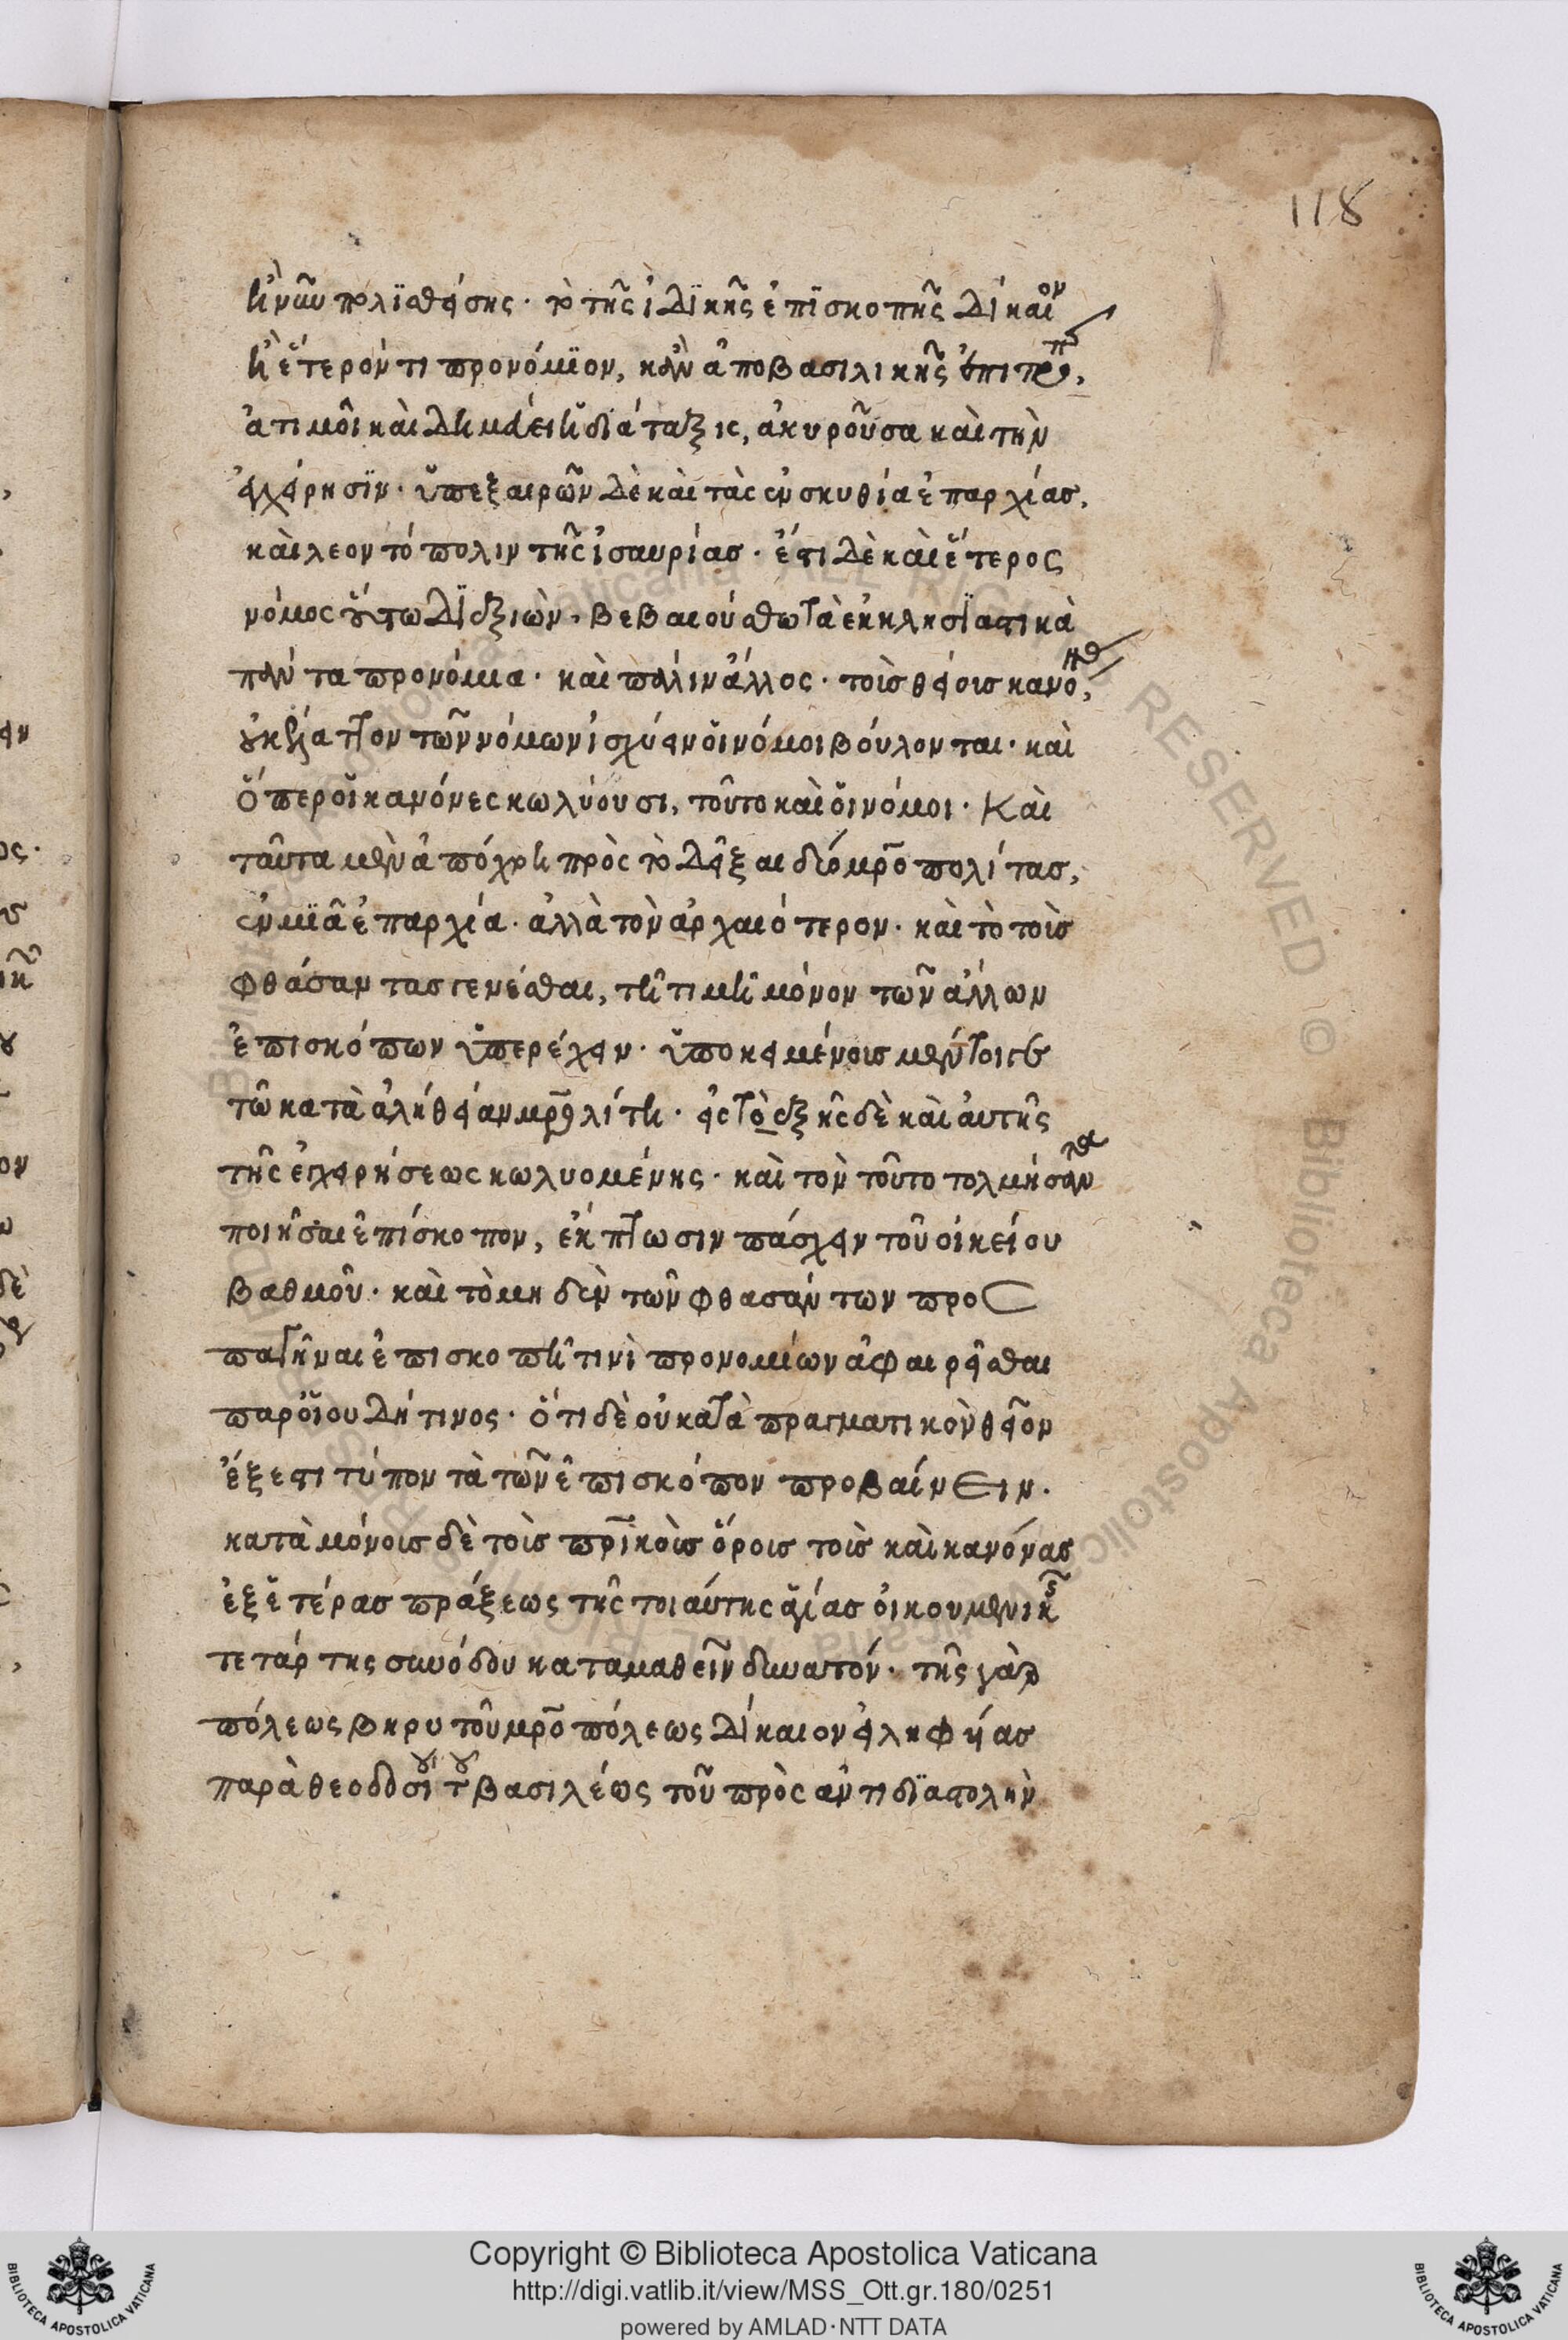 118
ἢ νῦν πολισθείσης· τὸ τῆς ἰδϊκῆς ἐπϊσκοπῆς δίκαιον
ἢ ἕτερόν τι προνόμϊον, κἂν ἀπο βασιλικῆς ἐπιτροπῆς,
ἀτιμοῖ καὶ δημεύει ἡ διάταξις, ἀκυροῦσα καὶ τὴν
ἐγχείρησϊν· ὑπεξαιρῶν δὲ καὶ τὰς ἐν σκυθία ἐπαρχίας,
καὶ λεοντόπολιν τῆς ἰσαυρίας· ἔτι δὲ καὶ ἕτερος
νόμος οὕτω δϊεξιὼν· βεβαιούσθω τὰ ἐκκλησϊαστικὰ
πάντα προνόμια· καὶ πάλιν ἄλλος· τοῖς θείοις κανό,
οὐκ ἔλαττον τῶν νόμων ἰσχύειν οἱ νόμοι βούλονται· καὶ
ὅπερ οἱ κανόνες κωλύουσι, τοῦτο καὶ οἱ νόμοι· Καὶ
ταῦτα μὲν ἀπόχρη πρὸς τὸ δεῖξαι δύο μρο πολίτας,
ἐν μϊᾶ ἐπαρχία· ἀλλὰ τὸν ἀρχαιότερον· καὶ τὸ τοῖς
φθάσαντας γενέσθαι, τῆ τιμῆ μόνον τῶν ἄλλων
ἐπισκόπων ὑπερέχειν· ὑποκειμένοις μέντοι γε
τῶ κατὰ ἀλήθειαν μρολίτη· εἰς τὸ ἑξῆς δὲ καὶ αὐτῆς
τῆς ἐγχειρήσεως κωλυομένης· καὶ τὸν τοῦτο τολμήσαντα
ποιῆσαι ἐπίσκοπον, ἐκπτωσιν πάσχειν τοῦ οἰκείου
βαθμοῦ· καὶ τὸ μηδὲν τῶν φθασάντων προς
παγῆναι ἐπισκοπῆ τινὶ προνομίων ἀφαιρεῖσθαι
παρ οἵου δή τινος· ὅτι δὲ οὐ κατὰ πραγματικὸν θεῖον
ἔξεστι τύπον τὰ τῶν ἐπισκόπον προβαίνειν·
κατὰ μόνοις δὲ τοῖς πρϊκοῖς ὅροις τοῖς καὶ κανόνας
ἐξ ἑτέρας πράξεως τῆς τοιαύτης ἁγίας οἰκουμενικῆς
τετάρτης συνόδου καταμαθεῖν δυνατόν· τῆς γὰρ
πόλεως βηρυτοῦ μρο πόλεως δίκαιον εἰληφυίας
παρὰ θεοδοσίου τοῦ βασιλέως τοῦ πρὸς ἀντιδϊαστολὴν
Copyright © Biblioteca Apostolica Vaticana
http://digi.vatlib.it/view/MSS_Ott.gr.180/0251
powered by AMLAD·NTT DATA